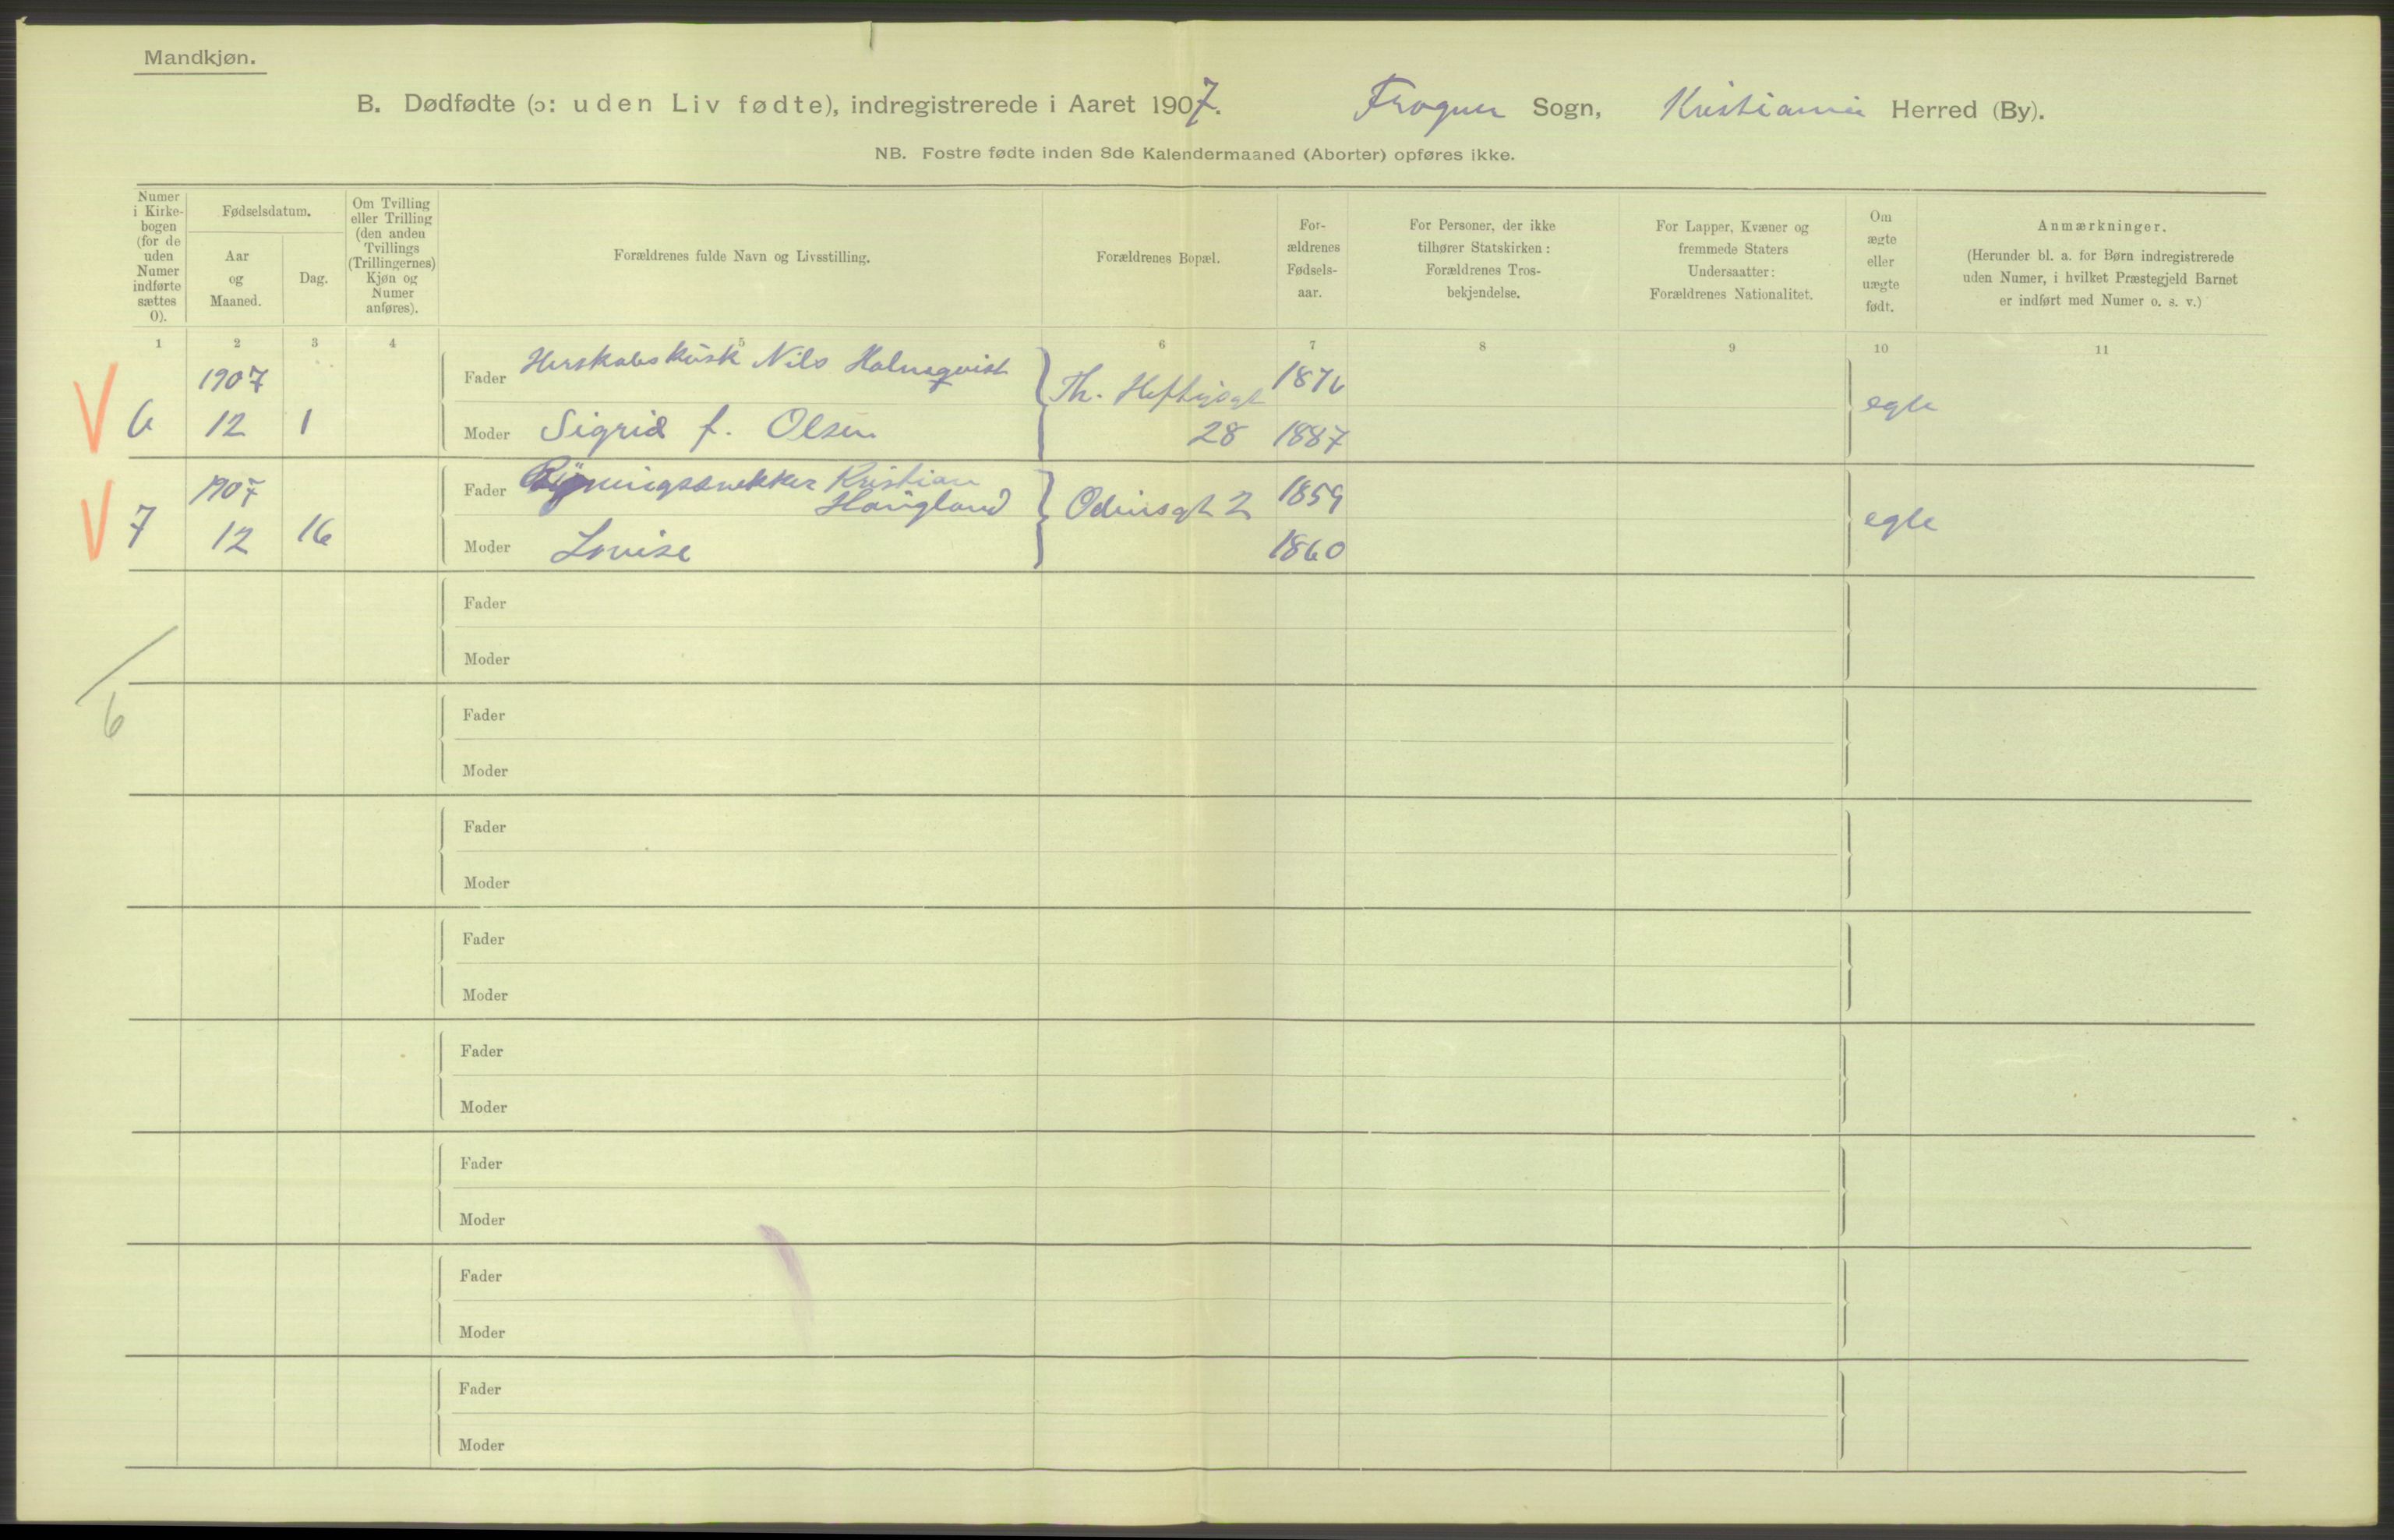 Mandkjøn.
B. Dødfødte (ɔ: uden Liv fødte), indregistrerede i Aaret 1907. Frogner Sogn, Kristiania Herred (By).
NB. Fostre fødte inden 8de Kalendermaaned (Aborter) opføres ikke.
Numer
i Kirke-
bogen
(for de
uden
Numer
indførte
sættes
0).
Fødselsdatum.
Aar
og
Maaned.
Dag.
Om Tvilling
eller Trilling
(den anden
Tvillings
(Trillingernes)
Kjøn og
Numer
anføres).
Forældrenes fulde Navn og Livsstilling.
Forældrenes Bopæl.
For-
ældrenes
Fødsels-
aar.
For Personer, der ikke
tilhører Statskirken:
Forældrenes Tros-
bekjendelse.
For Lapper, Kvæner og
fremmede Staters
Undersaatter:
Forældrenes Nationalitet.
Om
ægte
eller
uægte
født.
Anmærkninger.
(Herunder bl. a. for Børn indregistrerede
uden Numer, i hvilket Præstegjeld Barnet
er indført med Numer o. s. v.)
1 2 3 4 5 6 7 8 9 10 11
1907
Fader Herskabskusk Nils Holmqvist Th. Heftyesgt 1876
6 12 1 egte
Moder Sigrid f. Olsen 28 1887
1907
Fader Kristian
Haugland Odinsgt 2 1859
7 12 16 egte
Moder Louise 1860
Fader
Moder
6
Fader
Moder
Fader
Moder
Fader
Moder
Fader
Moder
Fader
Moder
Fader
Moder
Fader
Moder